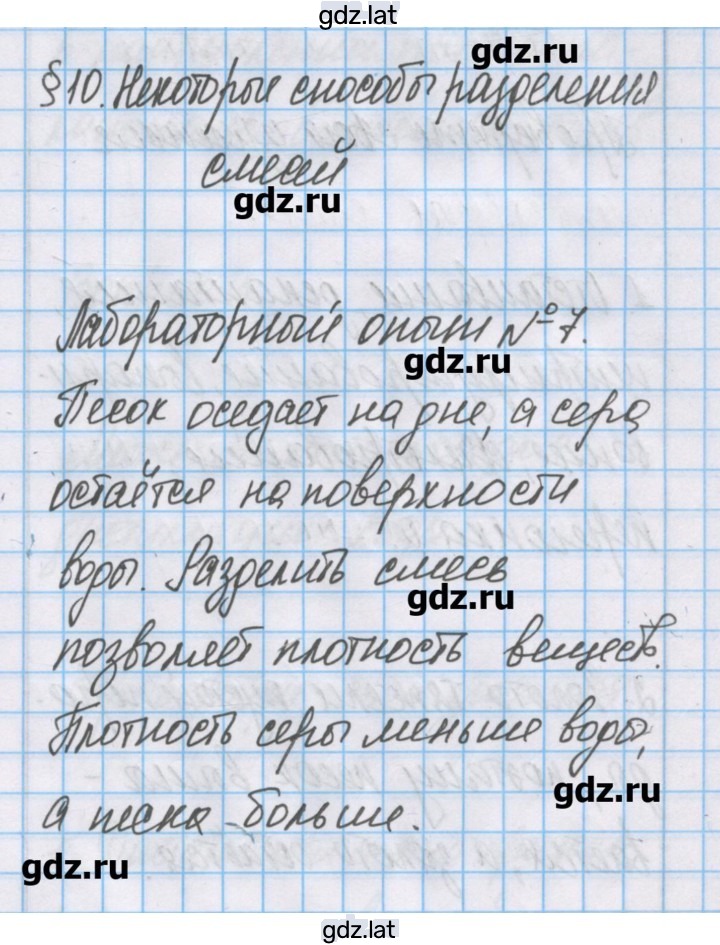 gdz.lat
gdz.ru
§10. Некоторые способы разделения
смесей
gdz.ru
Лабораторный опыт №7.
gdz.ru
Песок оседает на дне, а сера
остаётся на поверхности
воды. Разделить смесь
gdz.ru
позволяет плотность веществ.
Плотность серы меньше воды,
gdz.ru
а песка - больше.
gdz.ru
gdz.lat